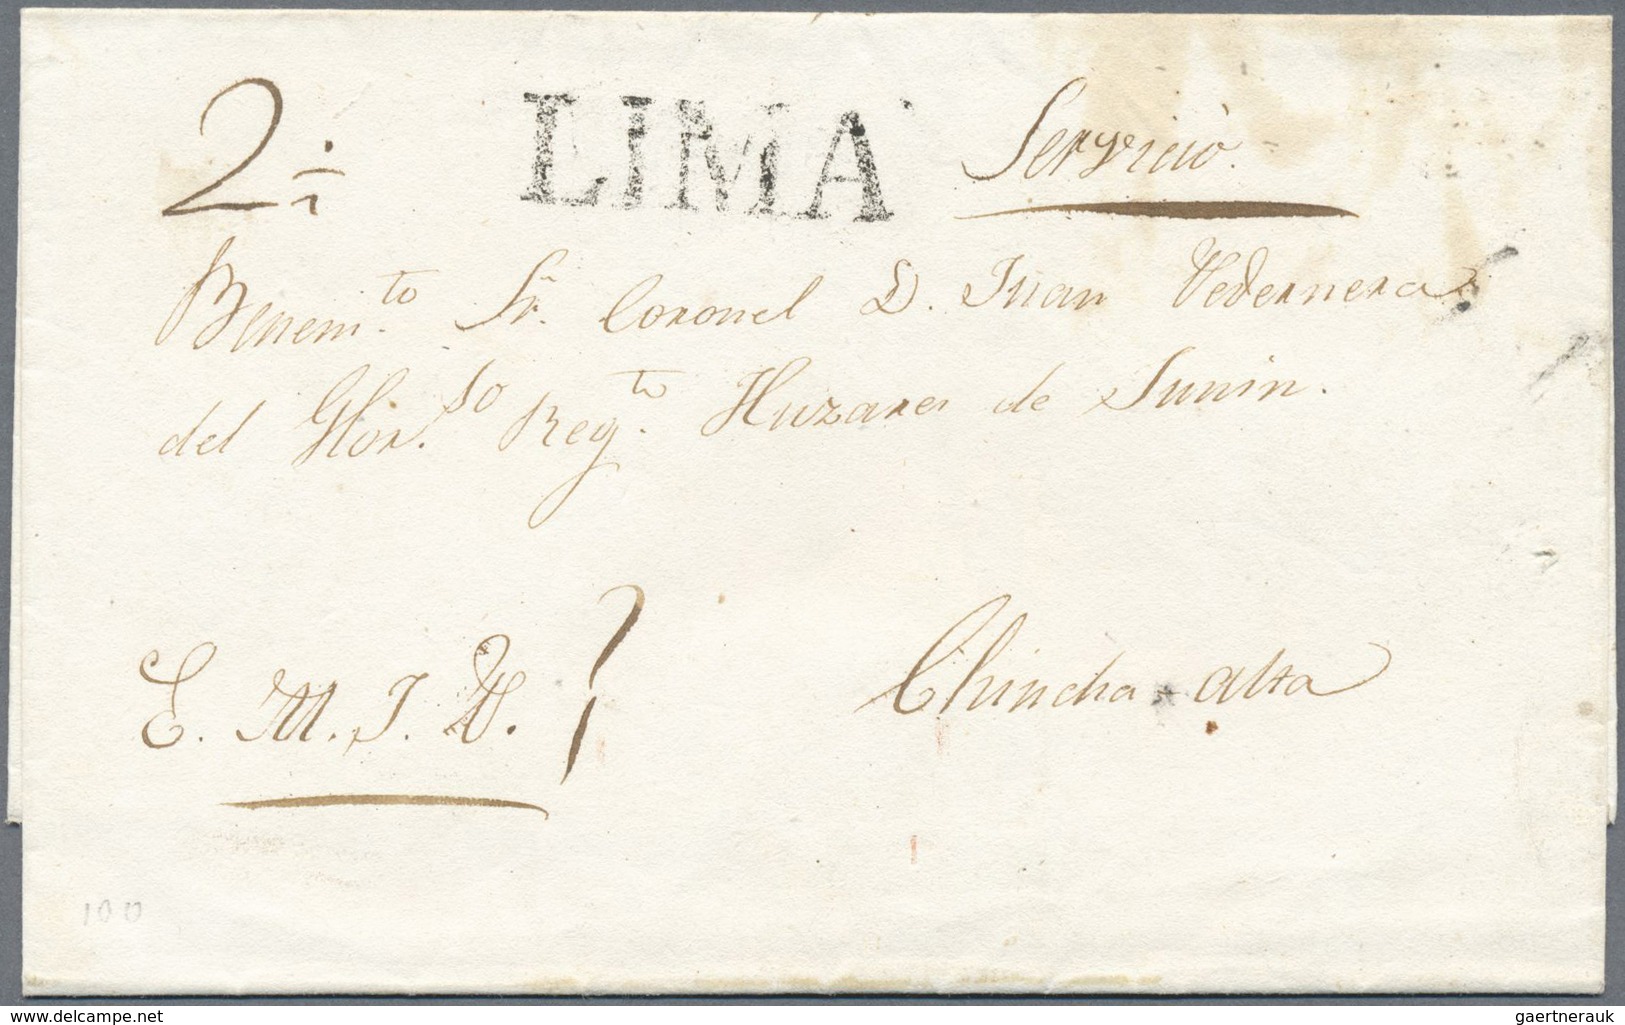 2 ÷ LIMA Servicio.
Benem.to Sr. Coronel D. Juan Pedernera
del Glor.so Reg.to Huzares de Junin.
E. M. I. D.
Chincha alta
100
www.delcampe.com
gaertnerauk